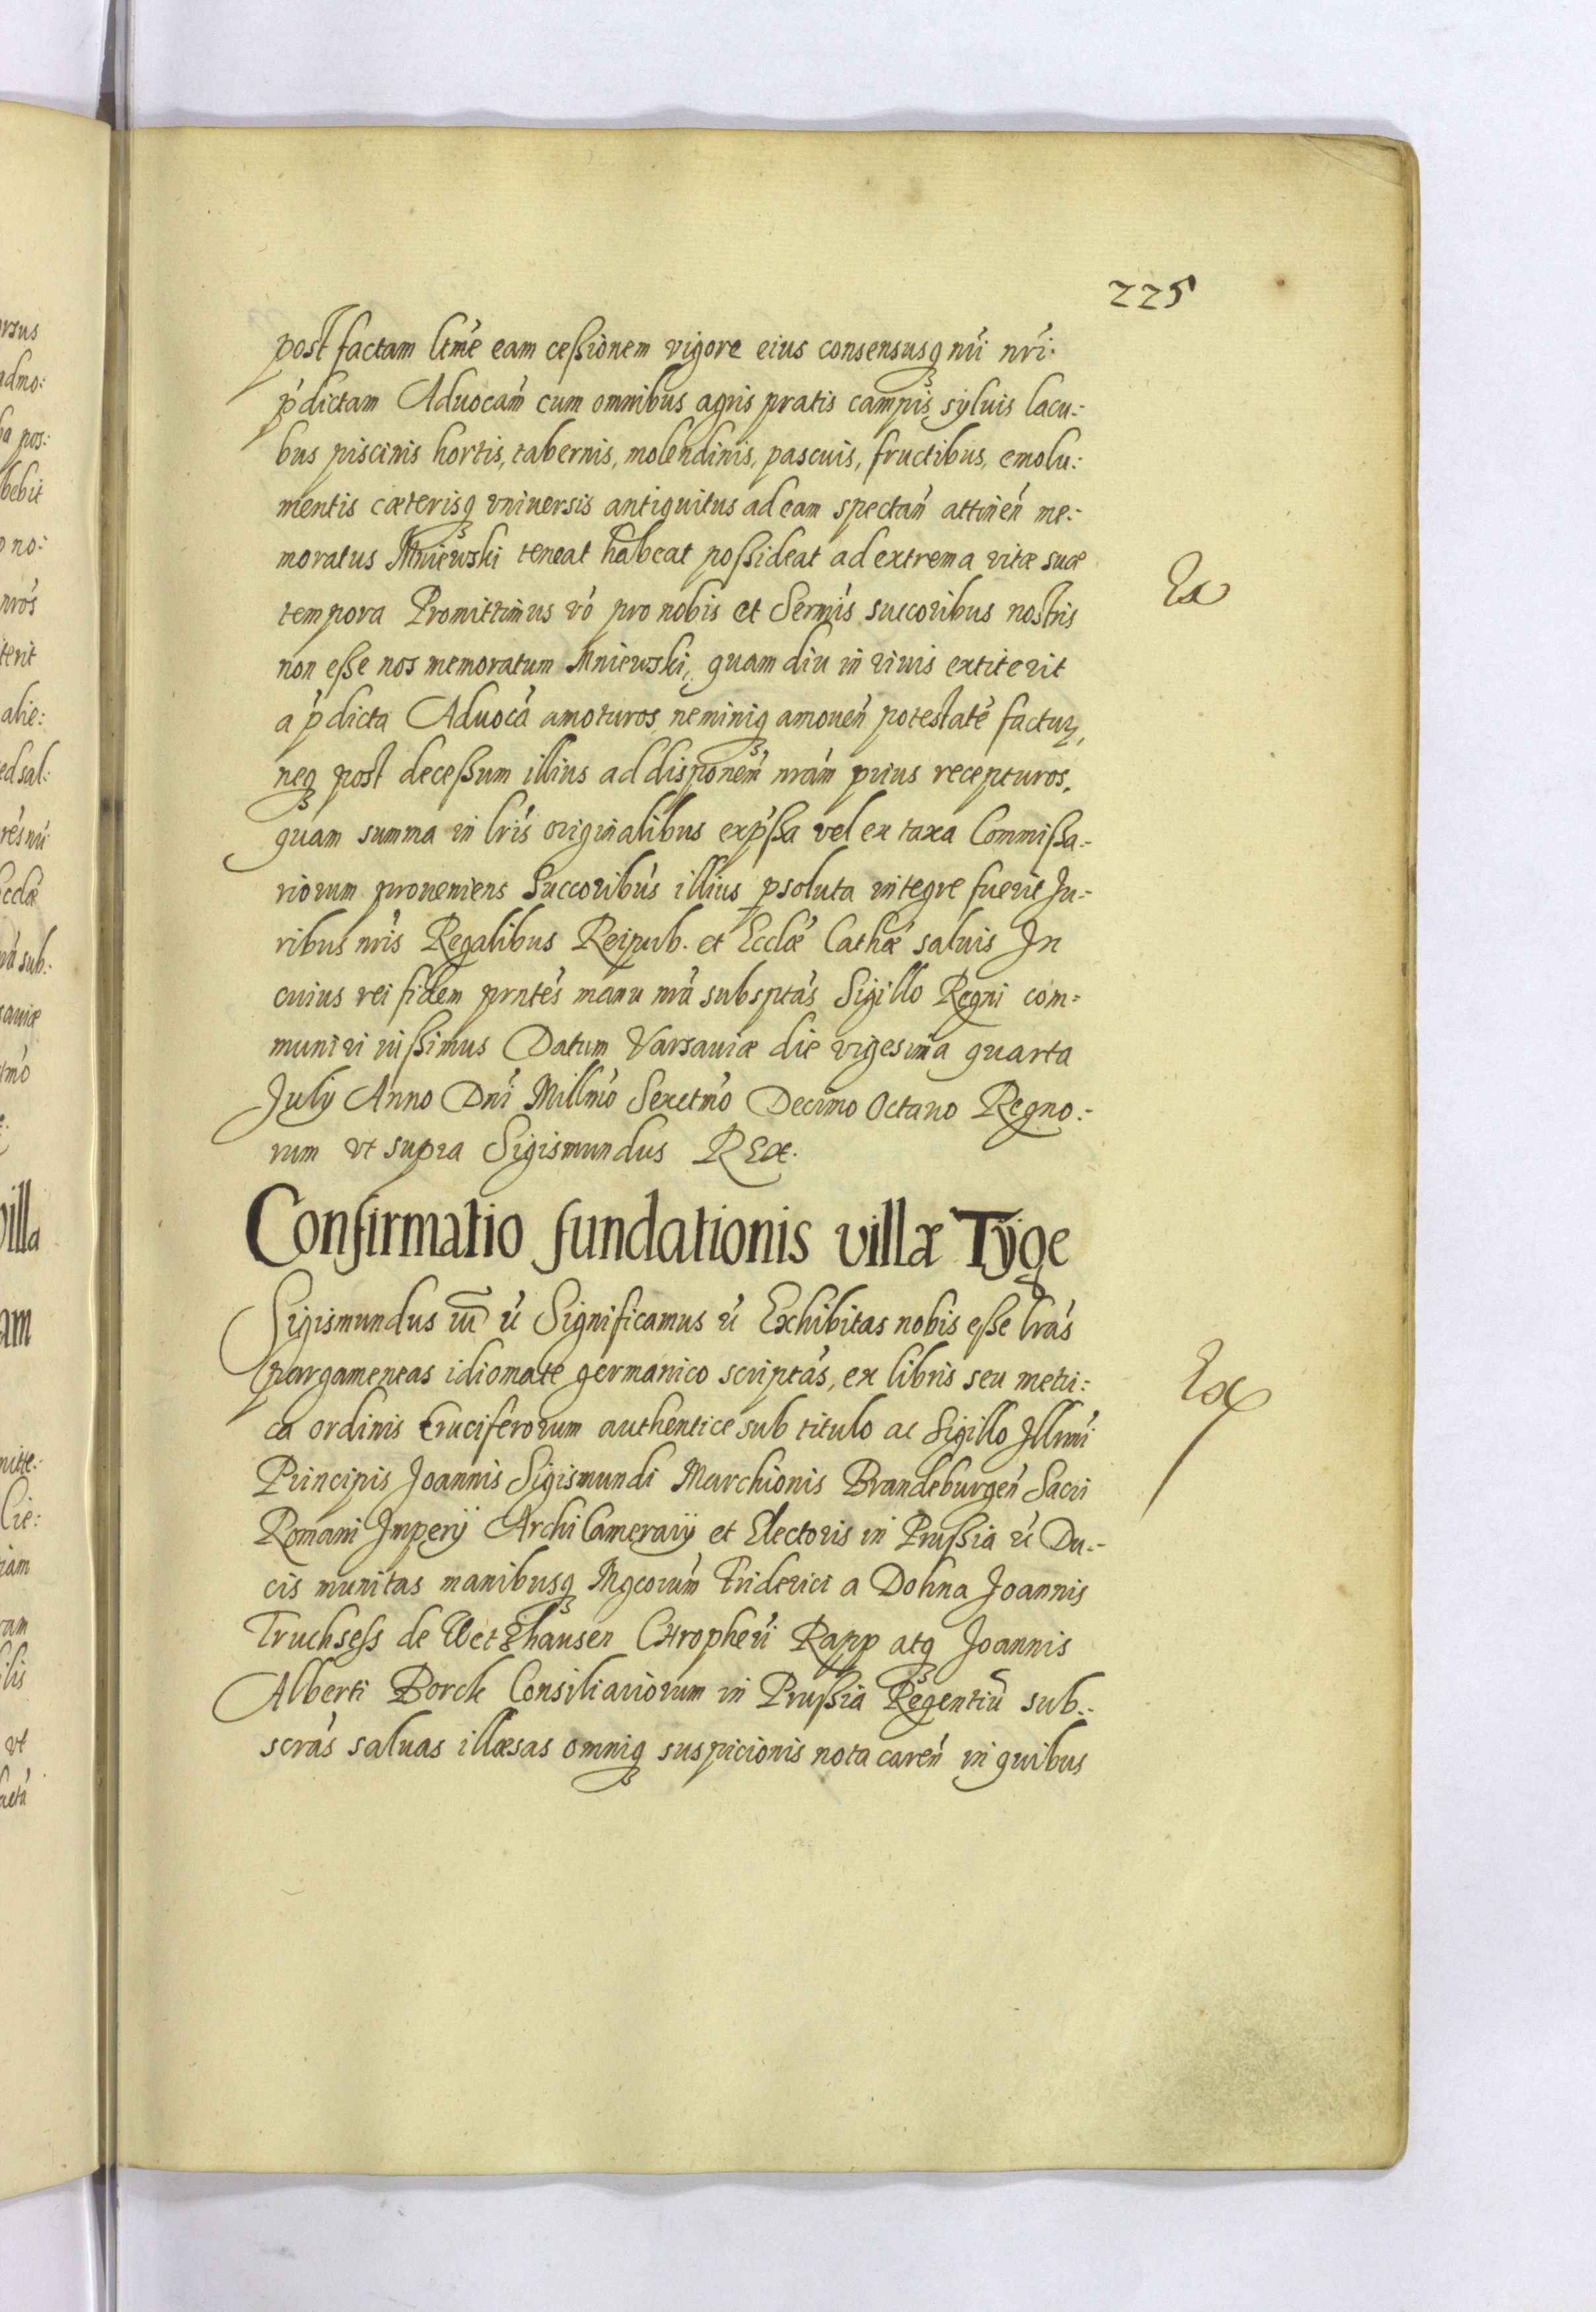 225
post factam ltm̃e eam cessionem vigore eius consensusq₃ nri nri.
p̃dictam Aduocam̃ cum omnibus agris pratis campis syluis lacu:
bus piscinis hortis, tabernis, molendinis, pascuis, fructibus, emolu:
mentis cæterisq₃ vniuersis antiquitus ad eam spectan̄ attinen̄ me:
moratus Mniewski teneat habeat possideat ad extrema vitæ suæ
tempora Promittimus vō pro nobis et Serm̄is succoribus nostris
non esse nos memoratum Mniewski, quam diu in viuis extiterit
a p̃dicta Aduocā amoturos neminiq₃ amouen̄ potestatē factur̨,
neq₃ post decessum illius ad disponem̄ nrām prius recepturos,
quam summa in lr̄is originalibus exp̃ssa vel ex taxa Commissa:
riorum proueniens Succoribus illius p̱soluta integre fuerit Ju:
ribus nr̄is Regalibus Reipub. et Ecclǣ Cathǣ saluis In
cuius rei fidem prntēs manu nrā subsptās Sigillo Regni com=
muniri iussimus Datum Varsauiæ die vigesima quarta
July Anno Dnī Millmō Sexctmō Decimo Octauo Regno:
rum vt supra Sigismundus REX.
Confirmatio fundationis villæ Tyge
Sigismundus III ũ Significamus ũ Exhibitas nobis esse lrās
pargameneas idiomate germanico scriptas, ex libris seu metri:
ca ordinis Cruciferorum authentice sub titulo ac Sigillo Jllmī
Principis Joannis Sigismundi Marchionis Brandeburgen̄ Sacri
Romani Jmperij ArchiCamerarij et Electoris in Prussia ũ Du:
cis munitas manibusq₃ Mgcorum̄ Friderici a Dohna Joannis
Truchsess de Wetzhausen Chropheri Rapp atq₃ Joannis
Alberti Borck Consiliariorum in Prussia Regentiū sub:
scrās saluas illæsas omniq₃ suspicionis nota caren̄ in quibus
Ex
Ex